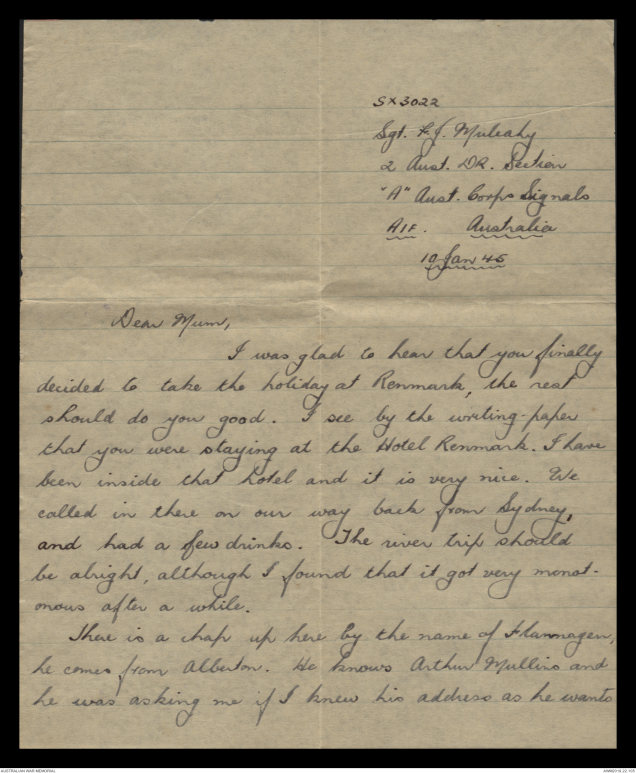 SX3022
Sgt. F.J. Mulcahy
2 Aust. DR. Section
"A" Aust. Corps Signals
AIF. Australia
10 Jan 45
Dear Mum,
I was glad to hear that you finally
decided to take the holiday at Renmark, the rest
should do you good. I see by the writing-paper
that you were staying at the Hotel Renmark. I have
been inside that hotel and it is very nice. We
called in there on our way back from Sydney,
and had a few drinks. The river trip should
be alright, although I found that it got very monot-
onous after a while.
There is a chap up here by the name of Flannagen,
he comes from Alberton. He knows Arthur Mullins and
he was asking me if I knew his address as he wants
AUSTRALIAN WAR MEMORIAL